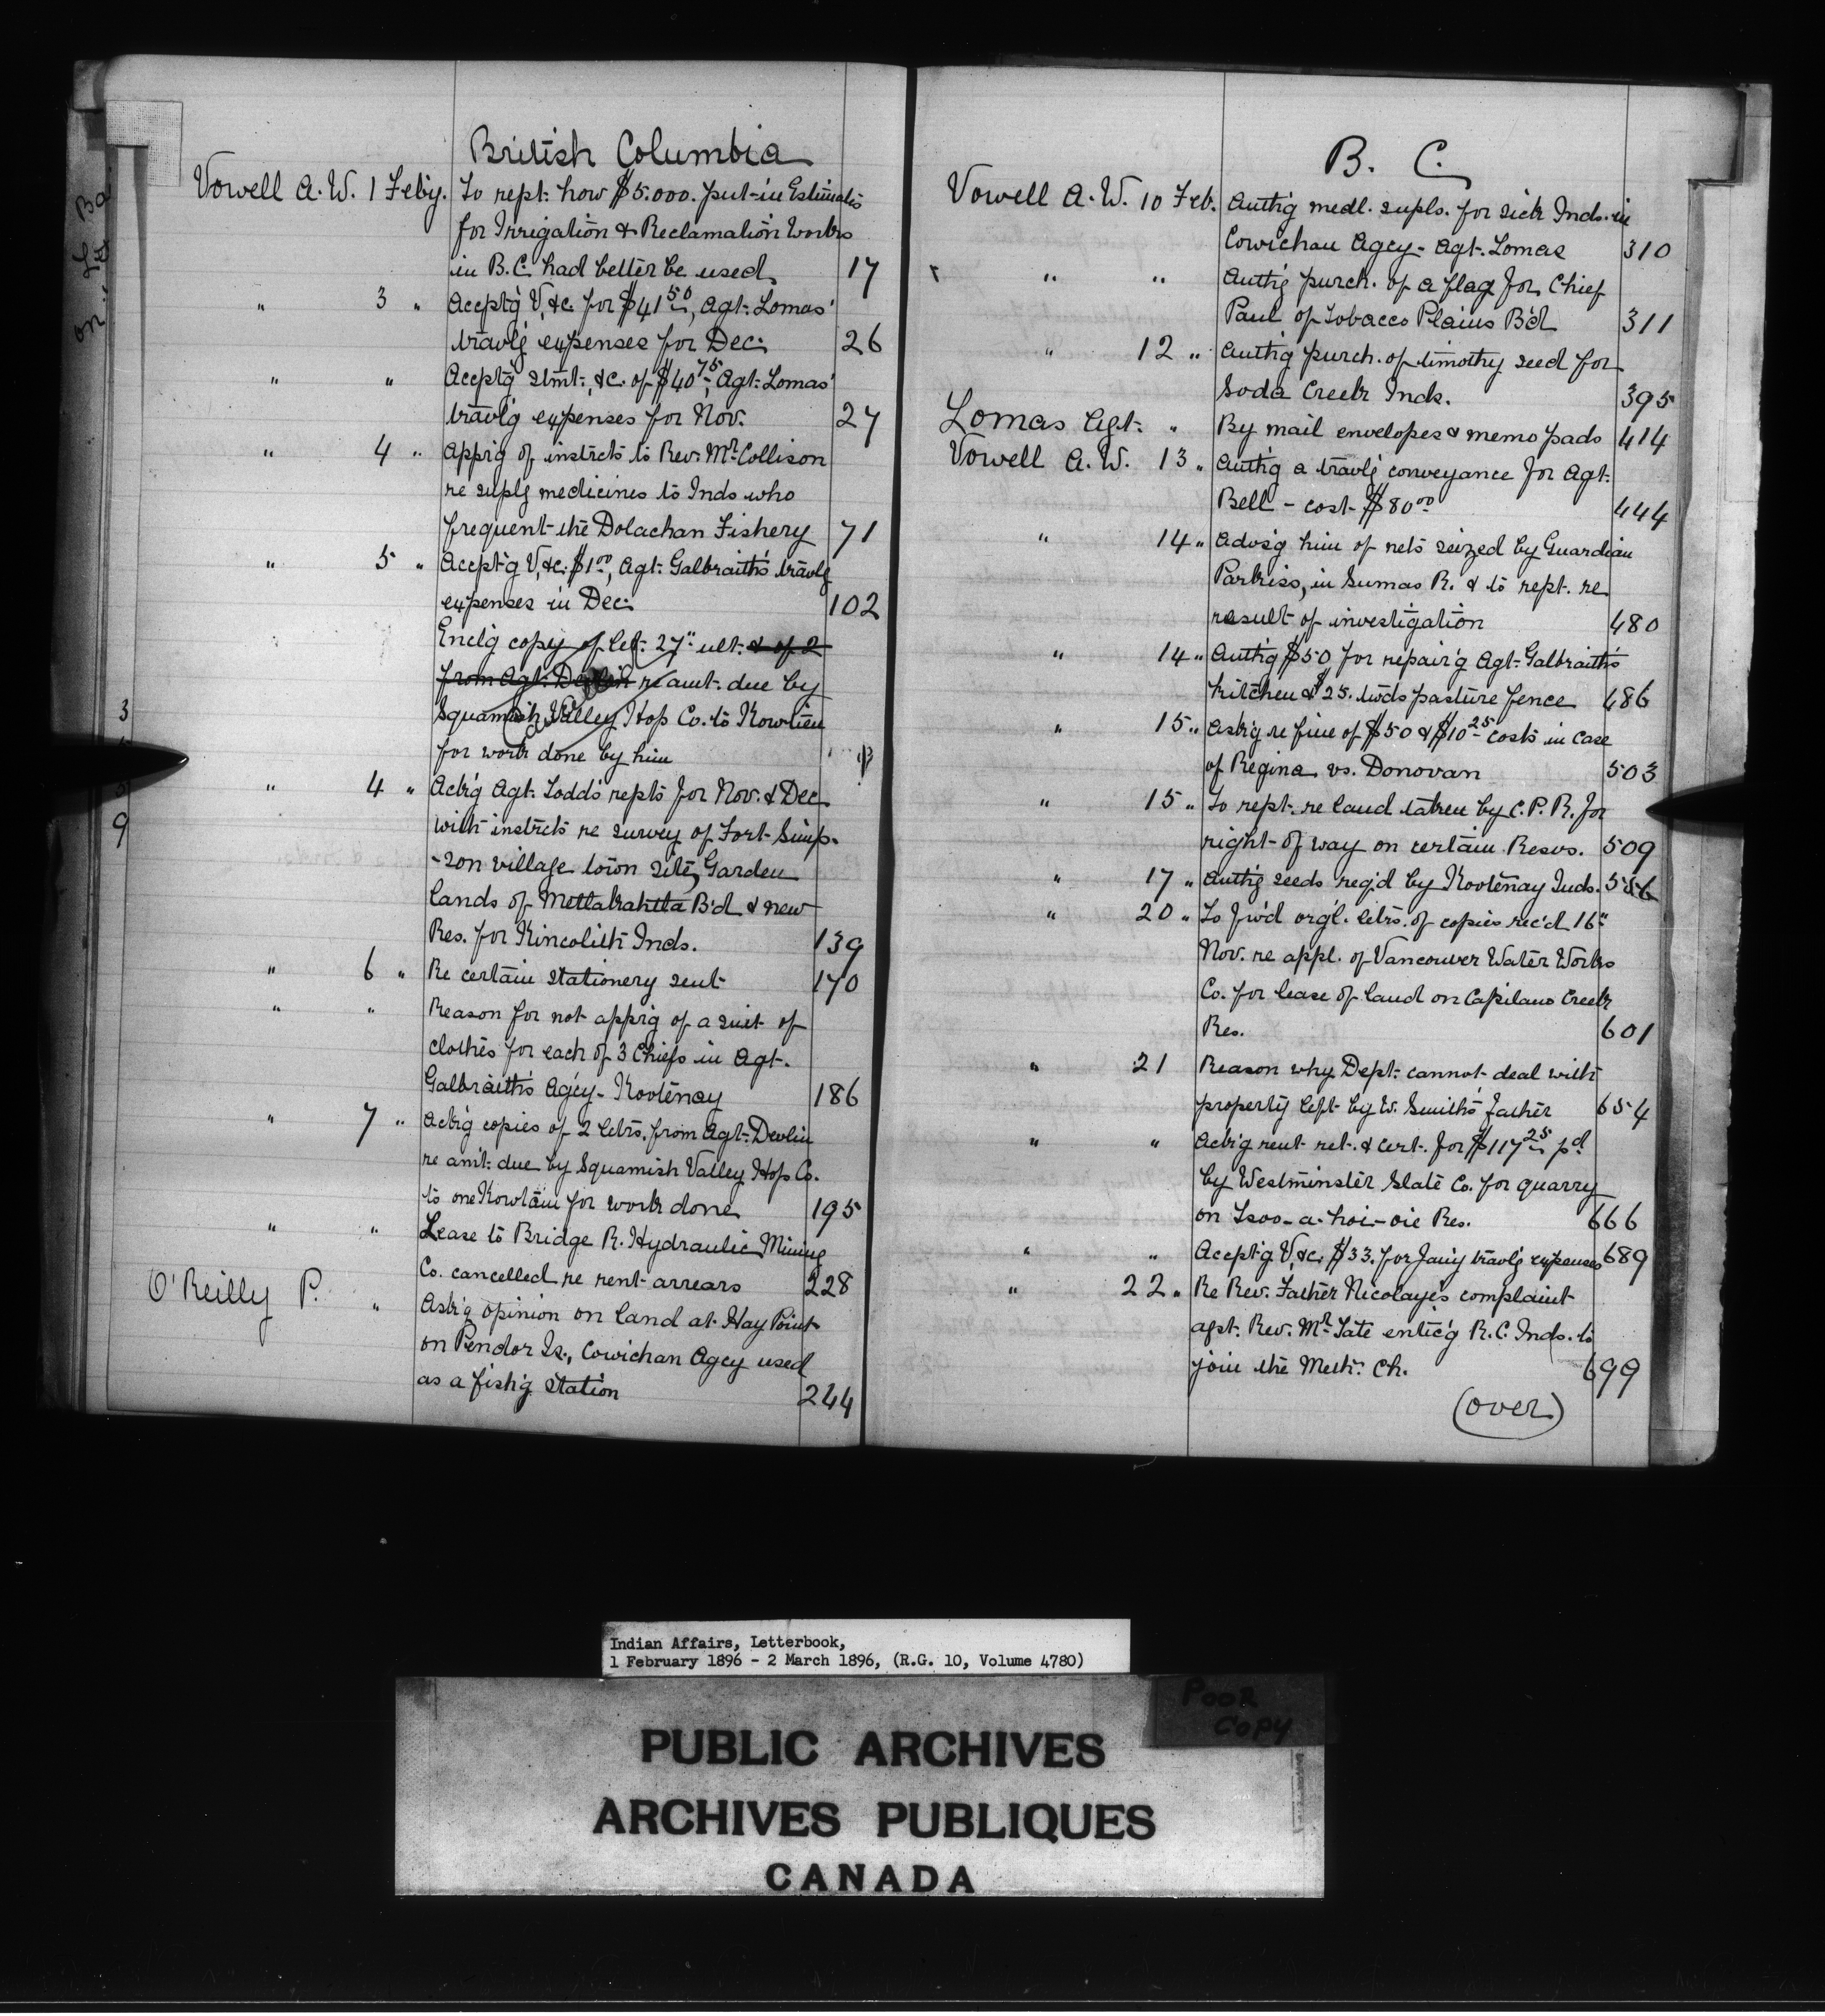 British Columbia
Vowell A. W. 1 Feby. To rept. how $5.000. put in Estimates
for Irrigation & Reclamation Works
in B.C. had better be used 17
" 3 " Acceptg V, &c. for $41 50, Agt. Lomas'
travlg expenses for Dec. 26
" " Acceptg Stmt., &c. of $40 75, Agt. Lomas'
travlg expenses for Nov. 27
" 4 " Apprg of instrcts to Rev. Mr Collison
re suplg medicines to Inds who
frequent the Oolachan Fishery 71
" 5 " Acceptg V, &c. $1 00, Agt. Galbraith's travlg
expenses in Dec. 102
Enclg copy of let. 27" ult. & of 2
from Agt. Devlin re amt. due by
Squamish Valley Hop Co. to Kowtien
for work done by him
" 4 " Ackg Agt. Todd's repts for Nov. & Dec.
with instrcts re survey of Fort Simp-
-son village town site, Garden
lands of Metlakahtla B'd & new
Res. for Kincolith Inds. 139
" 6 " Re certain stationery sent 170
" " Reason for not apprg of a suit of
clothes for each of 3 Chiefs in Agt.
Galbraith's Agcy - Kootenay 186
" 7 " Ackg copies of 2 letrs. from Agt. Devlin
re amt. due by Squamish Valley Hop Co.
to one Kowtain for work done 195
" " Lease to Bridge R. Hydraulic Mining
Co. cancelled re rent arrears 228
O'Reilly P. " Askg opinion on land at Hay Point
on Pendor Is., Cowichan Agcy used
as a fish'g station 244
3
5
9
B. C.
Vowell A. W. 10 Feb. Authg medl. supls. for sick Inds. in
Cowichan Agcy - Agt. Lomas 310
" " Authg purch. of a flag for Chief
Paul of Tobacco Plains B'd 311
" 12 " Authg purch. of timothy seed for
Soda Creek Inds. 395
Lomas Agt. " By mail envelopes & memo pads 414
Vowell A. W. 13 " Authg a travlg conveyance for Agt.
Bell - cost $80 00 444
" 14 " Advsg him of nets seized by Guardian
Parkiss, in Sumas R. & to rept. re
result of investigation 480
" 14 " Authg $50 for repair'g Agt. Galbraith's
kitchen & $25. twds pasture fence 486
" 15 " Askg re fine of $50 & $10 25 costs in case
of Regina vs. Donovan 503
" 15 " To rept. re land taken by C. P. R. for
right-of way on certain Resvs. 509
" 17 " Authg seeds reqd by Kootenay Inds. 556
" 20 " To fw'd org'l. letrs. of copies rec'd 16"
Nov. re appl. of Vancouver Water Works
Co. for lease of land on Capilano Creek
Res. 601
" 21 Reason why Dept. cannot deal with
property left by W. Smith's Father 654
" " Ackg rent ret. & cert. for $117 25 pd
by Westminster Slate Co. for quarry
on Tsoo-a-hoi-oie Res. 666
" " Acceptg V, &c. $33. for Jany travlg expenses 689
" 22 " Re Rev. Father Nicolaye's complaint
agst. Rev. Mr Tate entic'g R.C. Inds. to
join the Meth. Ch. 699
(over)
Indian Affairs, Letterbook,
1 February 1896 - 2 March 1896, (R.G. 10, Volume 4780)
Poor
Copy
PUBLIC ARCHIVES
ARCHIVES PUBLIQUES
CANADA